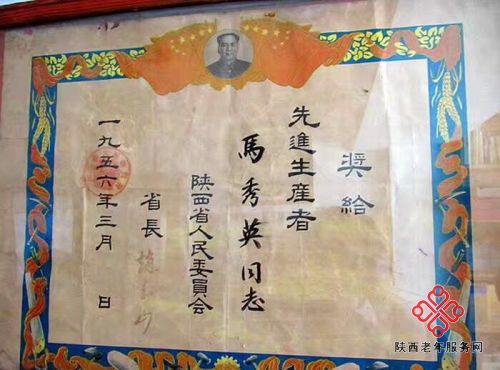 奨給
先進生産者
馬秀英同志
陝西省人民委員会
省長
一九五六年三月 日
陕西老年服务网